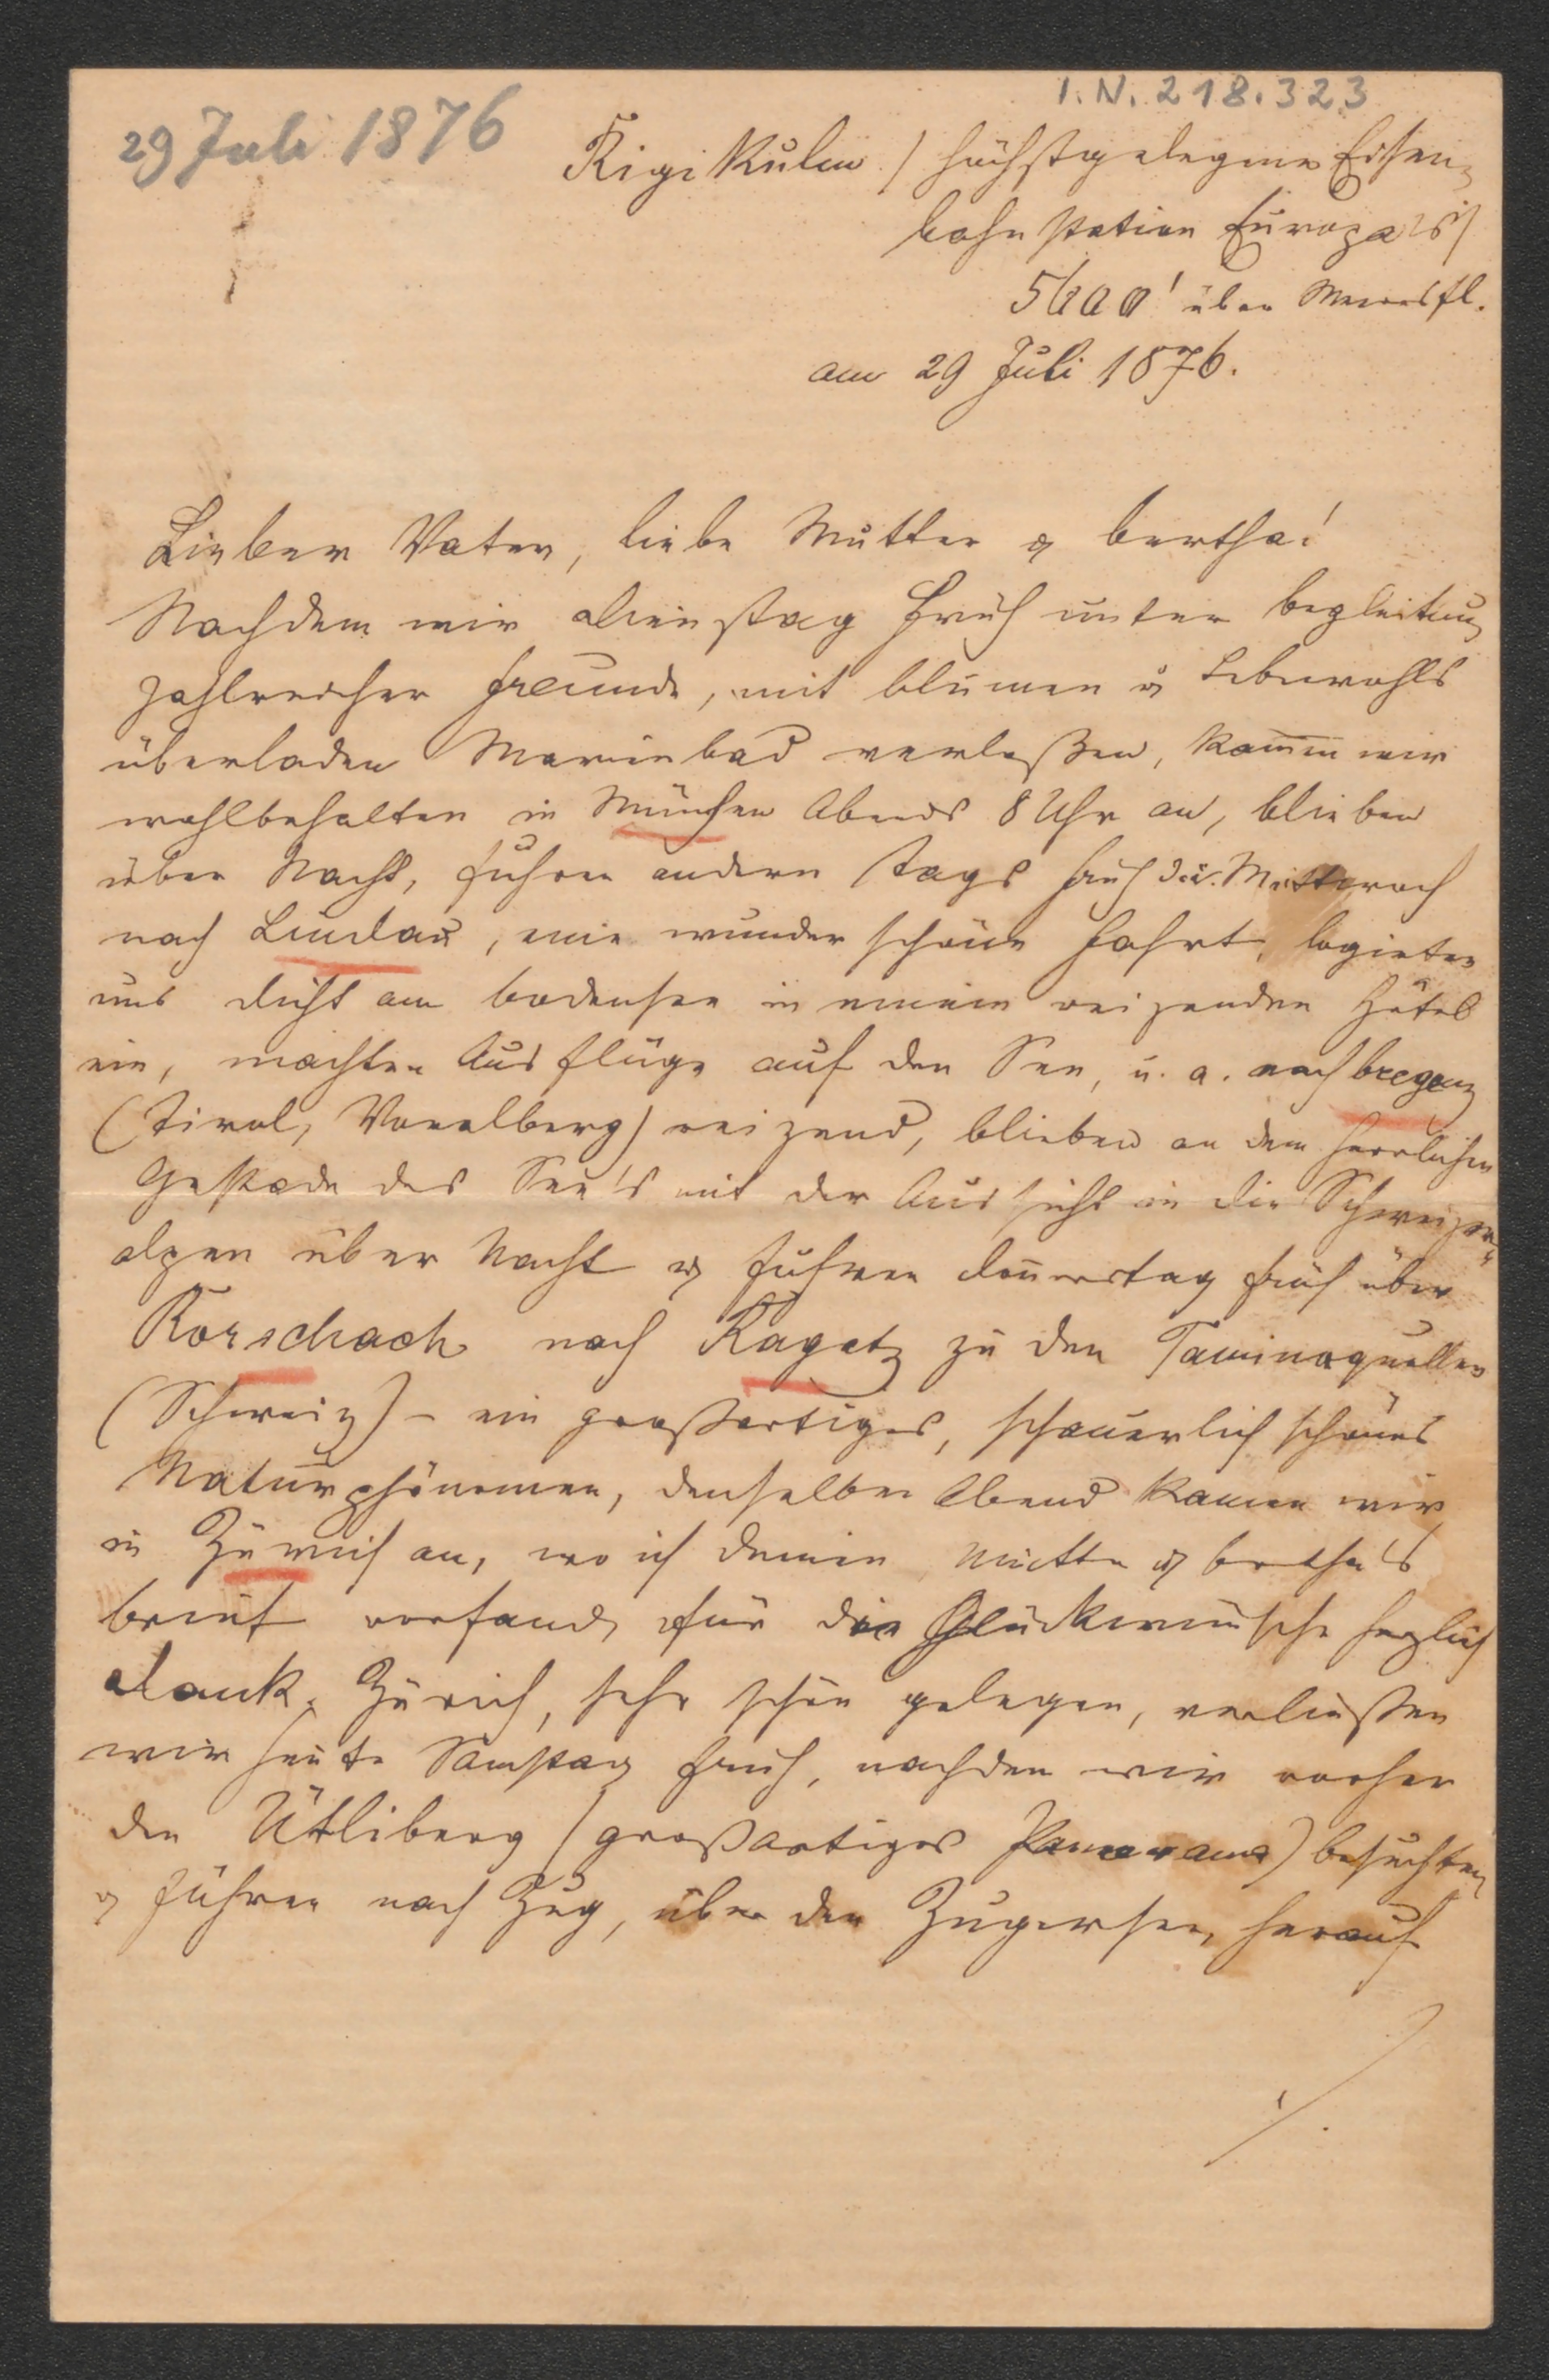 I.N. 218.323
29 Juli 1876
Rigi Kulm (höchstgelegene Eisen-
bahnstation Europa's)
über Meeresfl.
am 29 Juli 1876.
Lieber Vater, liebe Mutter & bertha!
Nachdem wir dienstag früh unter begleitung
zahlreicher freunde, mit blumen & Lebewohls
überladen Marienbad verlaßen, kamen wir
wohlbehalten in München Abends 8 Uhr an, blieben
über Nacht, fuhren andern Tags früh d.i. Mittwoch
nach Lindau, eine wunderschöne fahrt, logirten
uns dicht am bodensee in einem reizenden Hôtel
ein, machten Ausflüge auf den See, u. a. nach bregenz
(Tirol, Voralberg) reizend, blieben an dem herrlichen
Gestade des See's mit der Aussicht in die Schweizer-
alpen über Nacht & fuhren donnerstag früh über
Rorschach nach Ragatz zu den Taminaquellen
(Schweiz) – ein großartiges, schauerlich schönes
Naturphänomen, denselben Abend kamen wir
in Zürich an, wo ich deinen, Mutter & bertha's
brief vorfand, für die Glückwünsche herzlich
dank. Zürich, sehr schön gelegen, verließen
wir heute Samstag früh, nachdem wir vorher
den Ütliberg (großartiges Panorama) besuchten
& fuhren nach Zug, über den Zugersee, herauf
./.